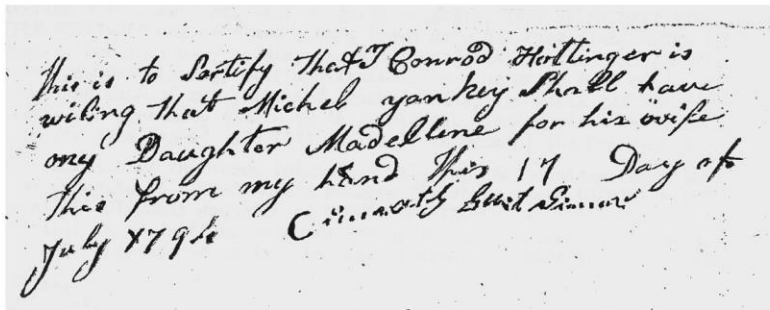 this is to Sertify that I Conrod Hottinger is
wiling that Michel yankey Shall have
my Daughter Madelline for his wife
this from my hand this 17 Day of
July 1794